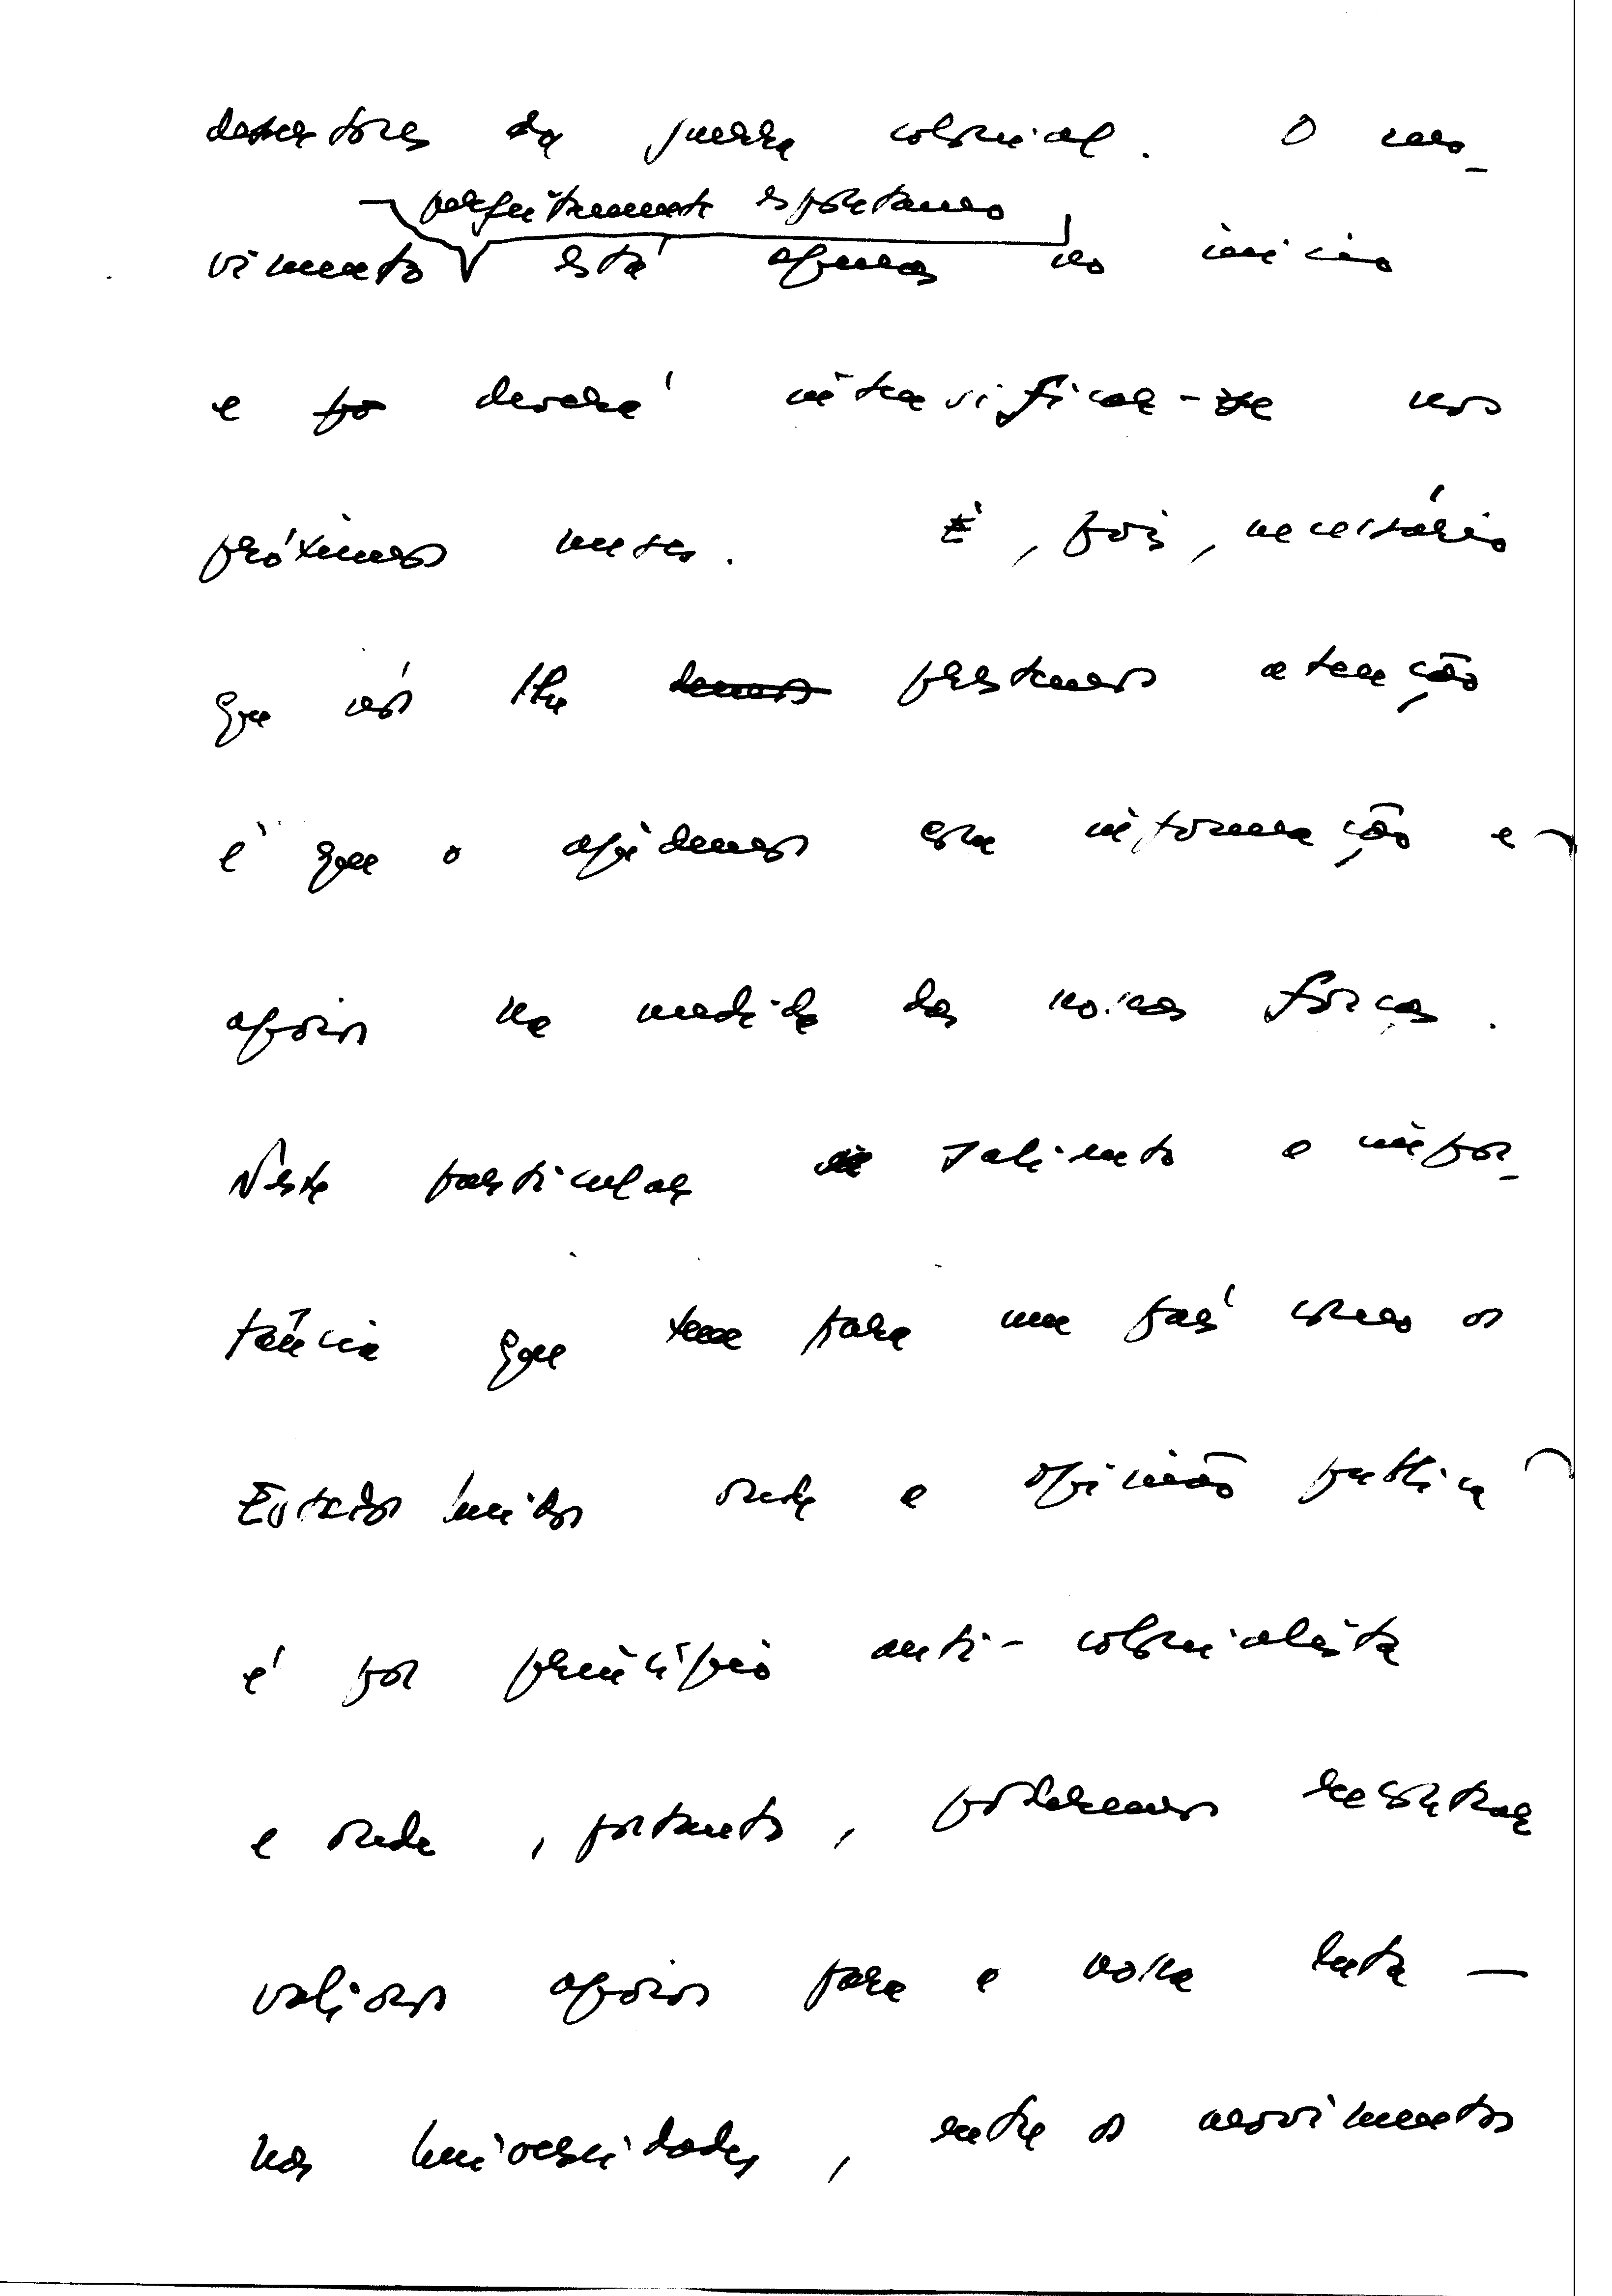 desertores da guerra colonial. O mo-
perfeitamente espontaneo
vimento está apenas no início
e deverá intensificar-se nos
próximos meses. É, pois, necessário
que nós lhe prestemos atenção
é que o ajudemos com informação e
apoios na medida das nossas forças.
Neste particular saliento a impor-
tância que tem para um país como os
Estados Unidos onde a opinião publica
é por princípio anti-colonialista
e onde, portanto, poderemos encontrar
valiosos apoios para a nossa luta —
nas Universidades, entre os movimentos